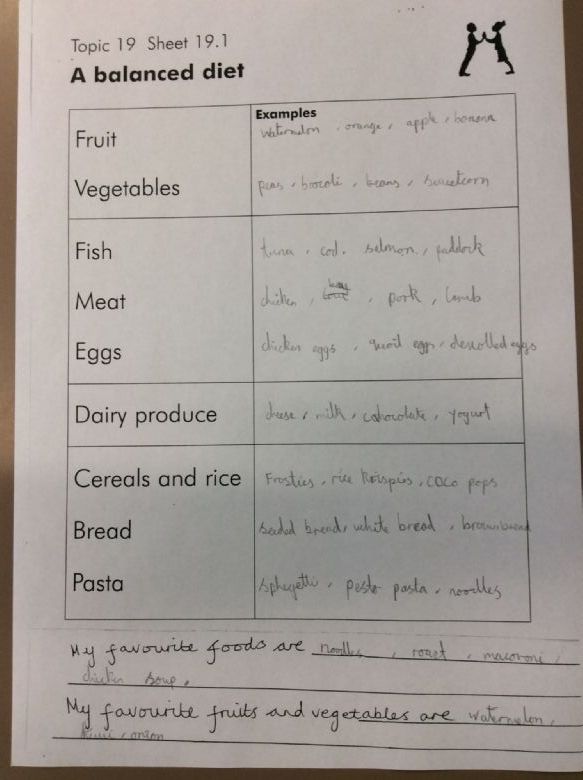 Topic 19 Sheet 19.1
A balanced diet
Examples
Fruit watermelon , orange , apple , banana
Vegetables peas , brocoli , beans , sweetcorn
Fish tuna , cod , salmon , paddock
Meat chicken , pork , lamb
Eggs chicken eggs , quail eggs , devolled eggs
Dairy produce cheese , milk , cahocolate , yogurt
Cereals and rice Frosties , rice krispies , coco pops
Bread seeded bread , white bread , brown bread
Pasta sphegetti , pesto pasta , noodles
My favourite foods are noodles , roast , macaroni ,
chicken soup .
My favourite fruits and vegetables are watermelon ,
onion